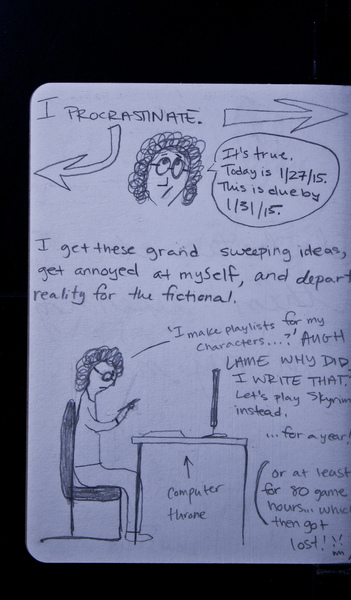 I PROCRASTINATE.
It's true.
Today is 1/27/15.
This is due by
1/31/15.
I get these grand sweeping ideas,
get annoyed at myself, and depart
reality for the fictional.
'I make playlists for my
characters...?' AUGH
LAME WHY DID
I WRITE THAT.
Let's play Skyrim
instead.
...for a year!
(or at least
for 80 game
hours... which
then got
lost!!
computer
throne